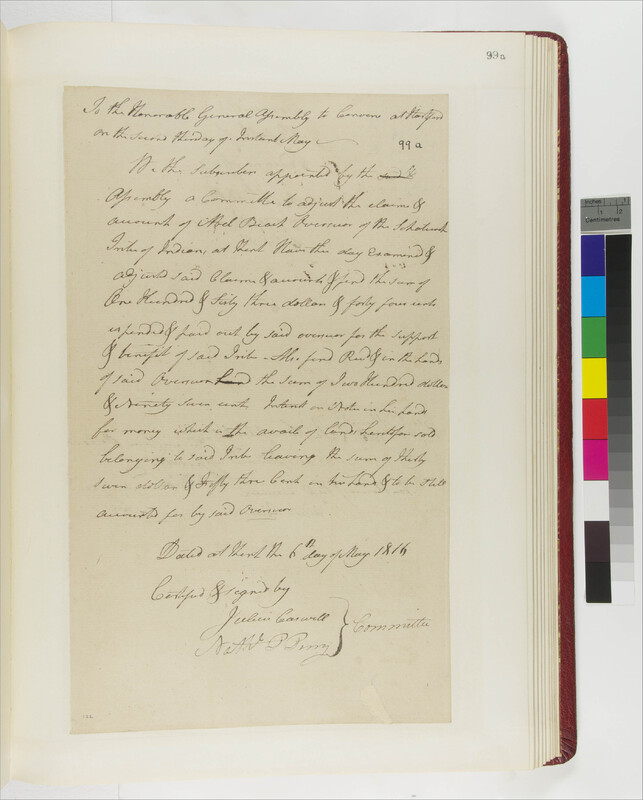 99a
To the Honorable General Assembly to Convene at Hartford
on the second thirsday of Instant May
99 a
We the Subscribers appointed by the
Assembly a Committe to adjust the claims &
account of Abel Beach Overseer of the Schoticook
Tribe of Indians, at Kent Have this day Examined &
adjusted said Claims & accounts & find the sum of
One Hundred & Sixty three dollars & forty four cents
expended & paid out by said overseer for the support
& benefit of said Tribe - Also find Recd & in the hands
of said Overseer the Sum of Two Hundred dollars
& Ninety Seven cents Interest on Notes in his hands
for money which is the avails of Lands heretofore sold
belonging to said Tribe leaving the sum of Thirty
Seven dollars & Fifty three Cents in his hands & to be Still
accounted for by said Overseer
Dated at Kent the 6th day of May 1816
Certifyed & signed by
Julius Caswell
Nathl P Perry
Committe
Inches
1
2
Centimetres